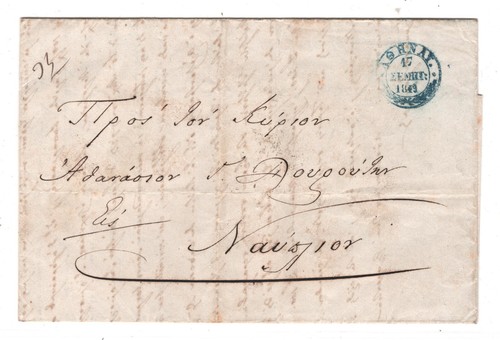 ΑΘΗΝΑΙ.
17
ΣΕΠΤ:
Πρὸς τὸν Κύριον
Ἀθανάσιον Γ. Δουρούτην
Εἰς
Ναύπλιον